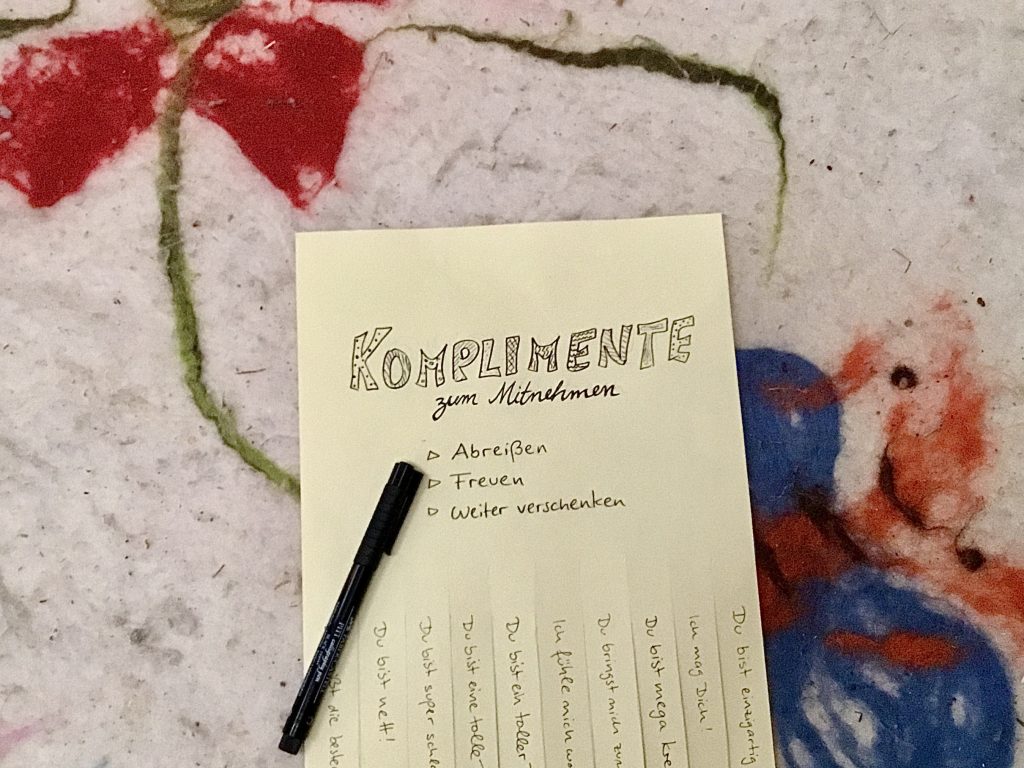 KOMPLIMENTE
zum Mitnehmen
▷ Abreißen
▷ Freuen
▷ weiter verschenken
die
Du bist nett!
Du bist super
Du bist eine tolle
Du bist ein toller
Ich fühle mich
Du bringst mich
Du bist mega
Ich mag Dich!
Du bist einzigartig